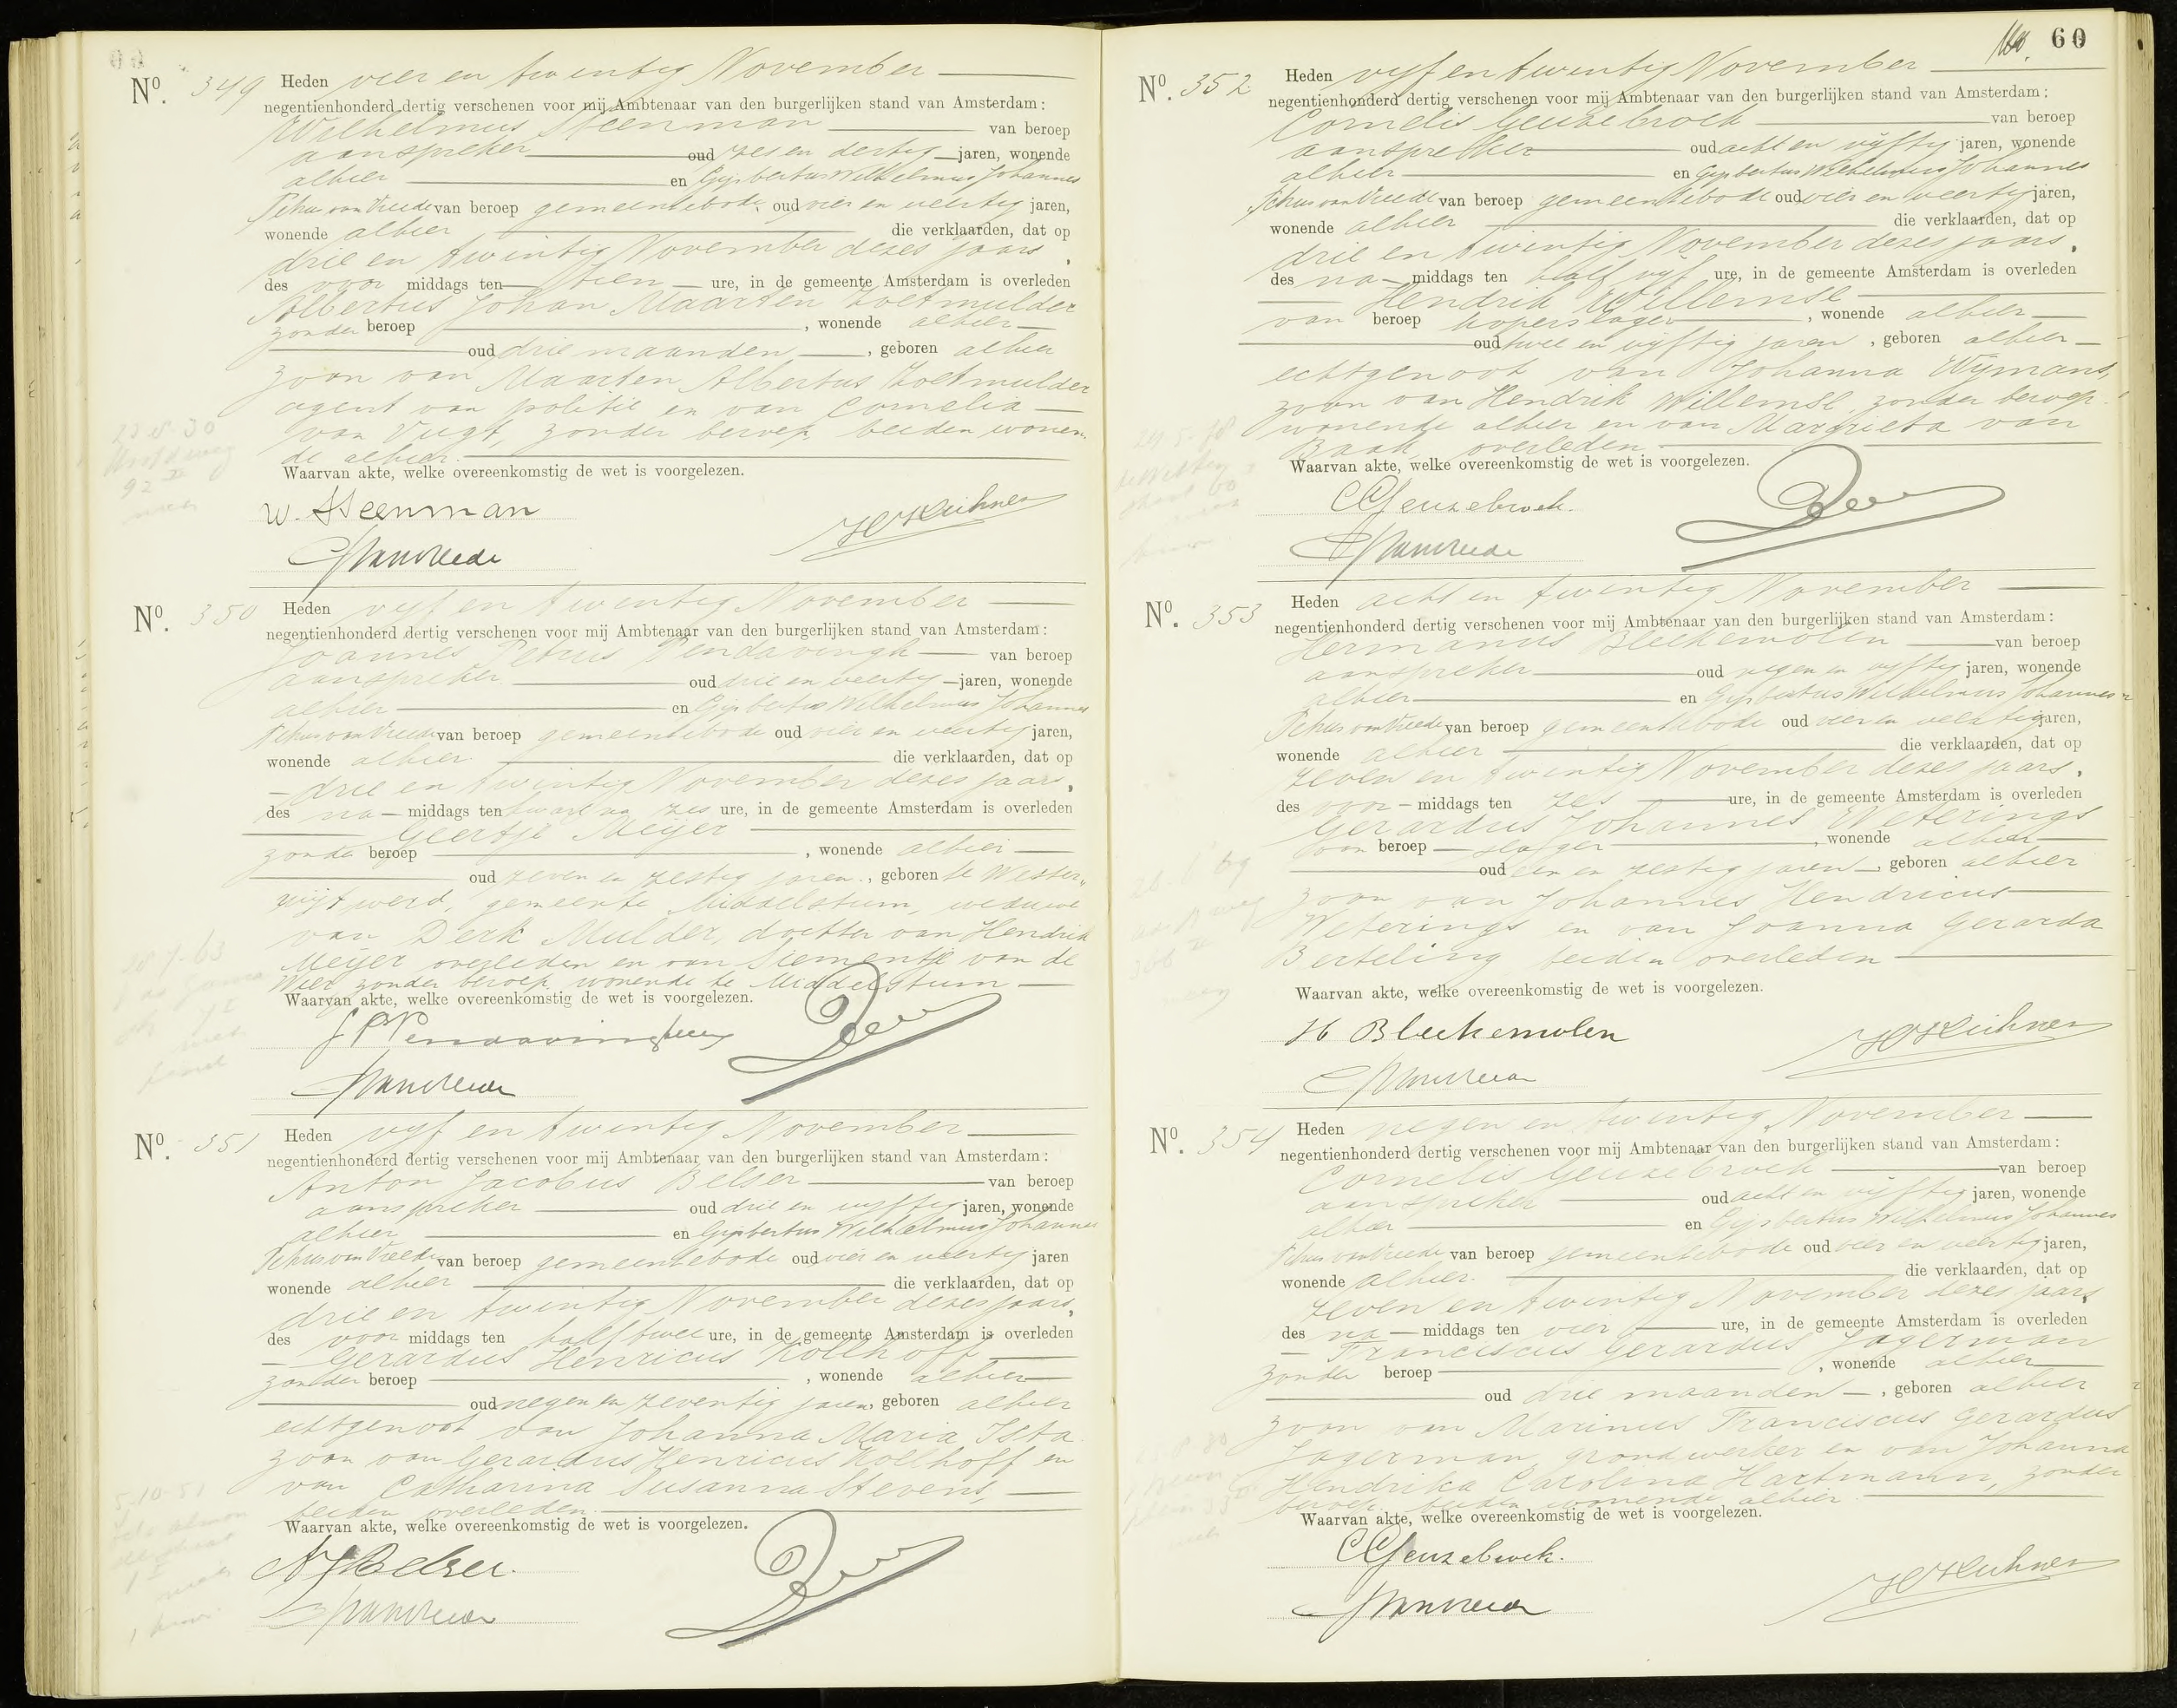 No. 349 Heden vier en twintig November
negentienhonderd dertig verschenen voor mij Ambtenaar van den burgerlijken stand van Amsterdam:
Wilhelmus Steenman van beroep
aanspreker oud zes en dertig jaren, wonende
alhier en Gijsbertus Wilhelmus Johannes
Petrus van Vreede van beroep gemeentebode oud vier en veertig jaren,
wonende alhier die verklaarden, dat op
drie en twintig November dezes jaars,
des voor middags ten tien ure, in de gemeente Amsterdam is overleden
Albertus Johan Maarten Zoetmulder
zonder beroep, wonende alhier
oud drie maanden, geboren alhier
zoon van Maarten Albertus Zoetmulder
agent van politie en van Cornelia
van Vugt, zonder beroep, beiden wonen
de alhier.
Waarvan akte, welke overeenkomstig de wet is voorgelezen.
W. Steenman
No. 350 Heden vijf en twintig November
negentienhonderd dertig verschenen voor mij Ambtenaar van den burgerlijken stand van Amsterdam:
Joannes Petrus Pendavingh van beroep
aanspreker oud drie en veertig jaren, wonende
alhier en Gijsbertus Wilhelmus Johannes
Petrus van Vreede van beroep gemeentebode oud vier en veertig jaren,
wonende alhier die verklaarden, dat op
drie en twintig November dezes jaars,
des na middags ten kwart na zes ure, in de gemeente Amsterdam is overleden
Geertje Meijer
zonder beroep, wonende alhier
oud zeven en zestig jaren, geboren te Wester„
wijtwerd, gemeente Middelstum, weduwe
van Derk Mulder, dochter van Hendrik
Meijer overleden en van Siementje van de
Weer zonder beroep, wonende te Middelstum
Waarvan akte, welke overeenkomstig de wet is voorgelezen.
No. 351 Heden vijf en twintig November
negentienhonderd dertig verschenen voor mij Ambtenaar van den burgerlijken stand van Amsterdam:
Anton Jacobus Belser van beroep
aanspreker oud drie en vijftig jaren, wonende
alhier en Gijsbertus Wilhelmus Johannes
Petrus van Vreede van beroep gemeentebode oud vier en veertig jaren
wonende alhier die verklaarden, dat op
drie en twintig November dezes jaars,
des voor middags ten half twee ure, in de gemeente Amsterdam is overleden
Gerardus Henricus Kollhoff
zonder beroep, wonende alhier
oud negen en zeventig jaren, geboren alhier
echtgenoot van Johanna Maria Ista
zoon van Gerardus Henricus Kollhoff en
van Catharina Susanna Stevens,
beiden overleden.
Waarvan akte, welke overeenkomstig de wet is voorgelezen.
AJBelser.
60
No. 352 Heden vijf en twintig November
negentienhonderd dertig verschenen voor mij Ambtenaar van den burgerlijken stand van Amsterdam:
Cornelis Geuzebroek van beroep
aanspreker oud acht en vijftig jaren, wonende
alhier en Gijsbertus Wilhelmus Johannes
Petrus van Vreede van beroep gemeentebode oud vier en veertig jaren,
wonende alhier die verklaarden, dat op
drie en twintig November dezes jaars,
des na middags ten half vijf ure, in de gemeente Amsterdam is overleden
Hendrik Willemse
van beroep koperslager, wonende alhier
oud twee en vijftig jaren, geboren alhier
echtgenoot van Johanna Wijmans,
zoon van Hendrik Willemse, zonder beroep
wonende alhier en van Margrieta van
Baak, overleden
Waarvan akte, welke overeenkomstig de wet is voorgelezen.
CGeuzebroek.
No. 353 Heden acht en twintig November
negentienhonderd dertig verschenen voor mij Ambtenaar van den burgerlijken stand van Amsterdam:
Hermanus Bleekemolen van beroep
aanspreker oud negen en vijftig jaren, wonende
alhier en Gijsbertus Wilhelmus Johannes
Petrus van Vreede van beroep gemeentebode oud vier en veertig jaren,
wonende alhier die verklaarden, dat op
zeven en twintig November dezes jaars,
des voor middags ten zes ure, in de gemeente Amsterdam is overleden
Gerardus Johannes Weterings
van beroep slager, wonende alhier
oud een en zestig jaren, geboren alhier
zoon van Johannes Hendricus
Weterings en van Joanna Gerarda
Berteling beiden overleden
Waarvan akte, welke overeenkomstig de wet is voorgelezen.
H Bleekemolen
No. 354 Heden negen en twintig November
negentienhonderd dertig verschenen voor mij Ambtenaar van den burgerlijken stand van Amsterdam:
Cornelis Geuzebroek van beroep
aanspreker oud acht en vijftig jaren, wonende
alhier en Gijsbertus Wilhelmus Johannes
Petrus van Vreede van beroep gemeentebode oud vier en veertig jaren,
wonende alhier. die verklaarden, dat op
zeven en twintig November dezes jaars,
des na middags ten vier ure, in de gemeente Amsterdam is overleden
Franciscus Gerardus Jagerman
zonder beroep, wonende alhier
oud drie maanden, geboren alhier
zoon van Marinus Franciscus Gerardus
Jagerman, grondwerker en van Johanna
Hendrika Carolina Hartmann, zonder
beroep beiden wonende alhier
Waarvan akte, welke overeenkomstig de wet is voorgelezen.
CGeuzebroek.